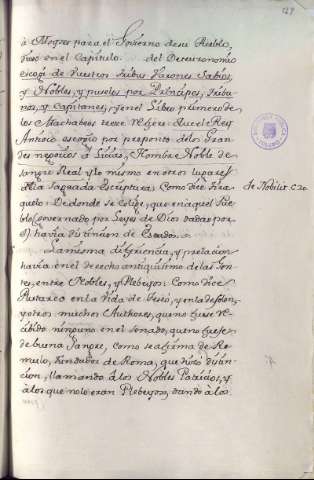 129
à Moyses para el Govierno de su Pueblo,
puso en el Capitulo del Deuteronomio
escogi de vuestros tribus Varones Sabios,
y Nobles, y puselos por Principes, tribu-
nos, y Capitanes, y en el Libro primero de
los Machabeos refiere que el Rey
Antioco escogio por preposito de los Gran-
des negocios à Lisias, Hombre Noble de
sangre Real, y lo mismo en otros lugares
de la Sagrada escriptura: Como dice Tira-
quelo: De donde se colige, que en aquel Pue-
blo (governado por Leyes de Dios dadas por
el) havia distincion de Estados.
La misma diferiencia, y prelacion
havia en el derecho antiquisimo de las Gen-
tes, entre Nobles, y Plebeyos: Como dice
Plutarco en la Vida de Teseo, y en la de Solon,
y otros muchos Authores, que no fuese re-
cibido ninguno en el Senado, que no fuese
de buena Sangre, como se afirma de Ro-
mulo, fundador de Roma, que hizo distin-
cion, llamando à los Nobles Patricios, y
à los que no lo eran Plebeyos, dando à los
de Nobilit. C. 20